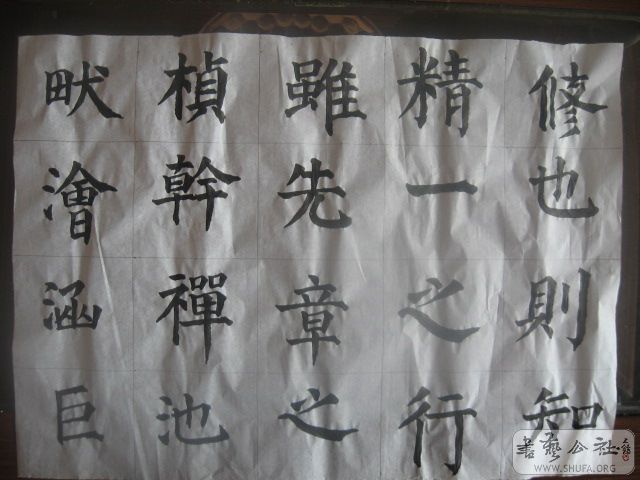 修也則知
精一之行
雖先章之
楨幹禪池
畎澮涵巨
書艺公社
WWW.SHUFA.ORG